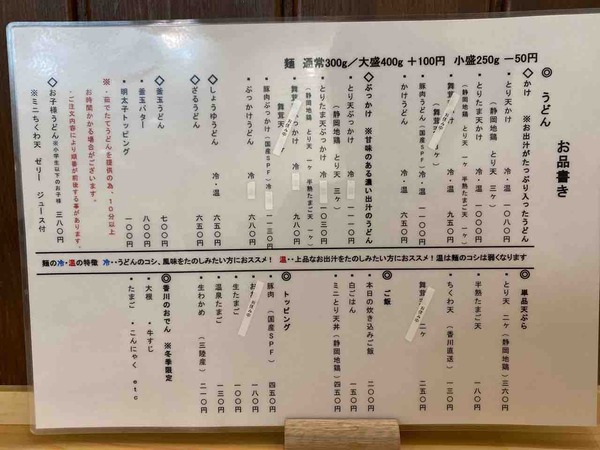 麺 通常300g／大盛400g ＋100円 小盛250g －50円
お品書き
◎ うどん
◇かけ ※お出汁がたっぷり入ったうどん
・とり天かけ 冷・温 一〇八〇円
（静岡地鶏 とり天 三ヶ）
・とり天たま天かけ 冷・温 一〇〇〇円
（静岡地鶏 とり天 一ヶ 半熟たまご天 一ヶ）
・舞茸 かけ 冷・温 九五〇円
・豚肉うどん（国産ＳＰＦ）冷・温
・かけうどん 冷・温 六五〇円
◇ぶっかけ ※甘味のある濃い出汁のうどん
・とり天ぶっかけ 冷・温
（静岡地鶏 とり天 三ヶ）
・とりたま天ぶっかけ 冷・温 一〇三〇円
（静岡地鶏 とり天 一ヶ 半熟たまご天 一ヶ）
・舞茸天 かけ 冷・温 九八〇円
・豚肉ぶっかけ（国産ＳＰＦ）冷 一一三〇円
・ぶっかけうどん 冷・ 六八〇円
◇しょうゆうどん 冷・温 六五〇円
◇ざるうどん 六五〇円
◇釜玉うどん 七〇〇円
・釜玉バター 八〇〇円
・明太子トッピング 一〇〇円
※・茹でたてうどんを提供の為、10分以上
お時間かかる場合がございます。
・ご注文内容により順番が前後する事があります。
◇お子様うどん ※小学生以下のお子様 三八〇円
※ミニちくわ天 ゼリー ジュース付
麺の冷・温の特徴 冷・・うどんのコシ、風味をたのしみたい方におススメ！ 温・・上品なお出汁をたのしみたい方におススメ！温は麺のコシは弱くなります
◎ 単品天ぷら
・とり天 二ヶ（静岡地鶏）三六〇円
・半熟たまご天 一八〇円
・ちくわ天 （香川直送） 一三〇円
・舞茸 二ヶ 二五〇円
◎ ご飯
・本日の炊き込みご飯 二〇〇円
・白ごはん 一五〇円
・ミニとり天丼（静岡地鶏）四五〇円
◎ トッピング
・豚肉 （国産ＳＰＦ） 四五〇円
・お 一〇〇円
・生たまご 一八〇円
・温泉たまご 一三〇円
・生わかめ （三陸産） 二一〇円
◎ 香川のおでん ※冬季限定
・大根 ・牛すじ
・たまご ・こんにゃく ｅｔｃ